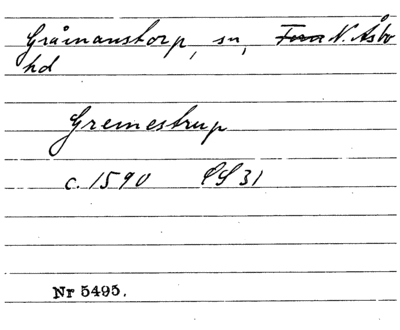 Gråmanstorp, sn, N. Åsbo
hd
Gremestrup
c. 1590 LS 31
Nr 5495.